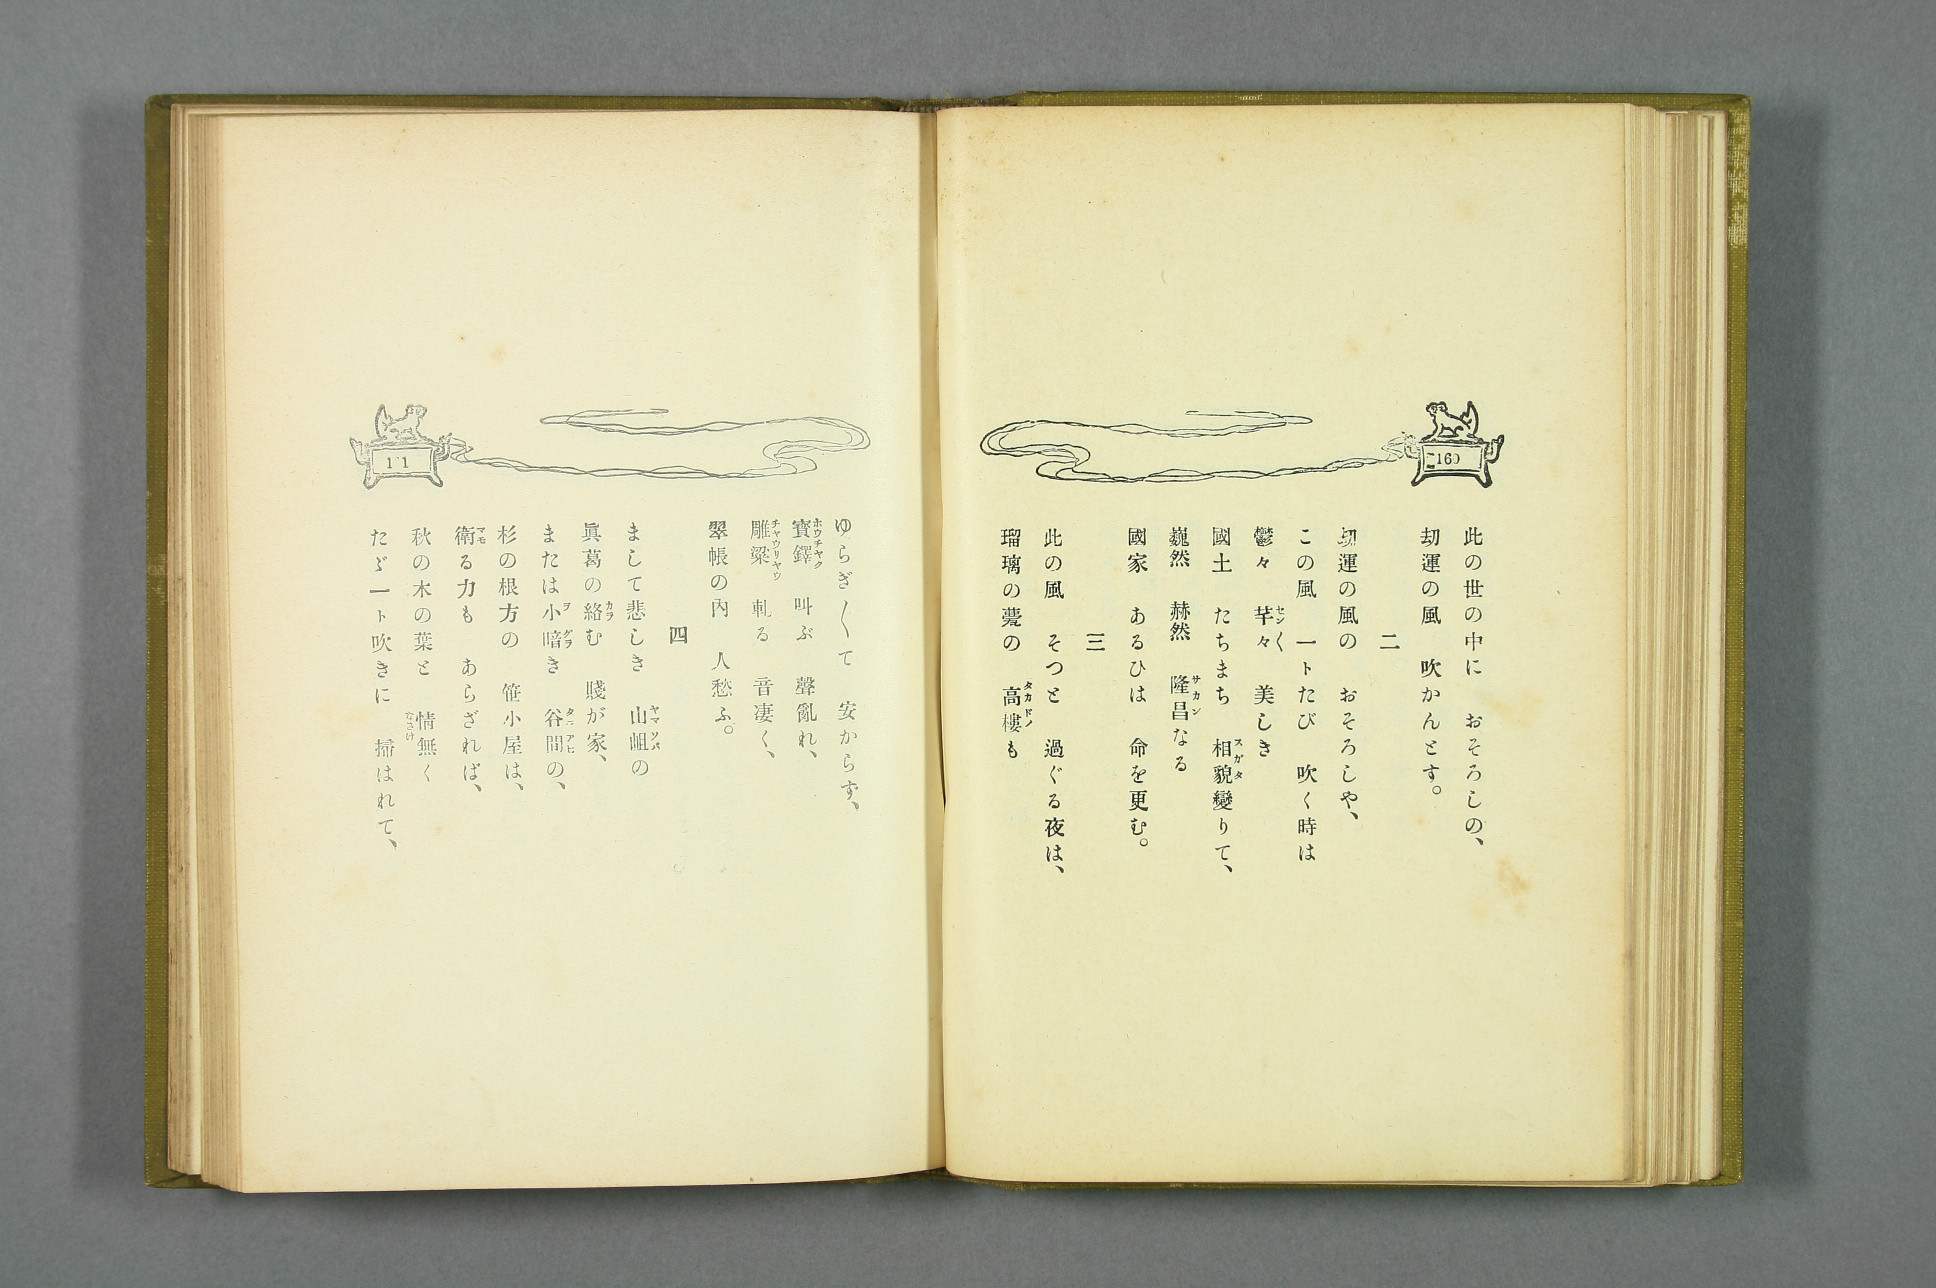 160
此の世の中に　おそろしの、
劫運の風　吹かんとす。
二
劫運の風の　おそろしや、
この風　一トたび　吹く時は
鬱々　芊々く　美しき
國土　たちまち　相貌變りて、
巍然　赫然　隆昌なる
國家　あるひは　命を更む。
三
此の風　そつと　過ぐる夜は、
瑠璃の甍の　高樓も
ゆらぎ〱て　安からず、
寳鐸　叫ぶ　聲亂れ、
雕粱　軋る　音凄く、
翠帳の內　人愁ふ。
四
まして悲しき　山岨の
眞葛の絡む　賤が家、
または小暗き　谷間の、
杉の根方の　笹小屋は、
衛る力も　あらざれば、
秋の木の葉と　情無く
たゞ一ト吹きに　掃はれて、